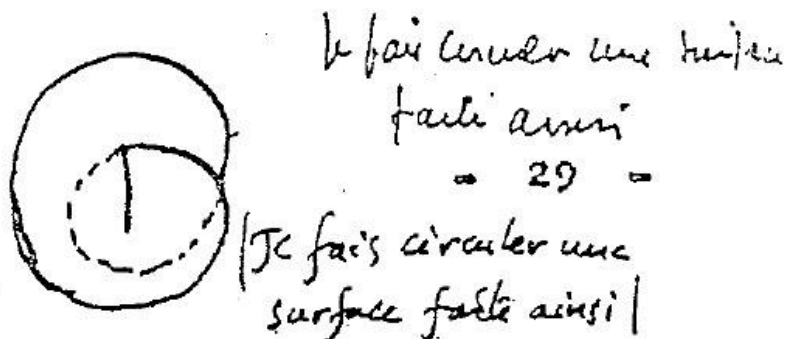 Je fais circuler une surface
faite ainsi
= 29 =
|Je fais circuler une
surface faite ainsi|